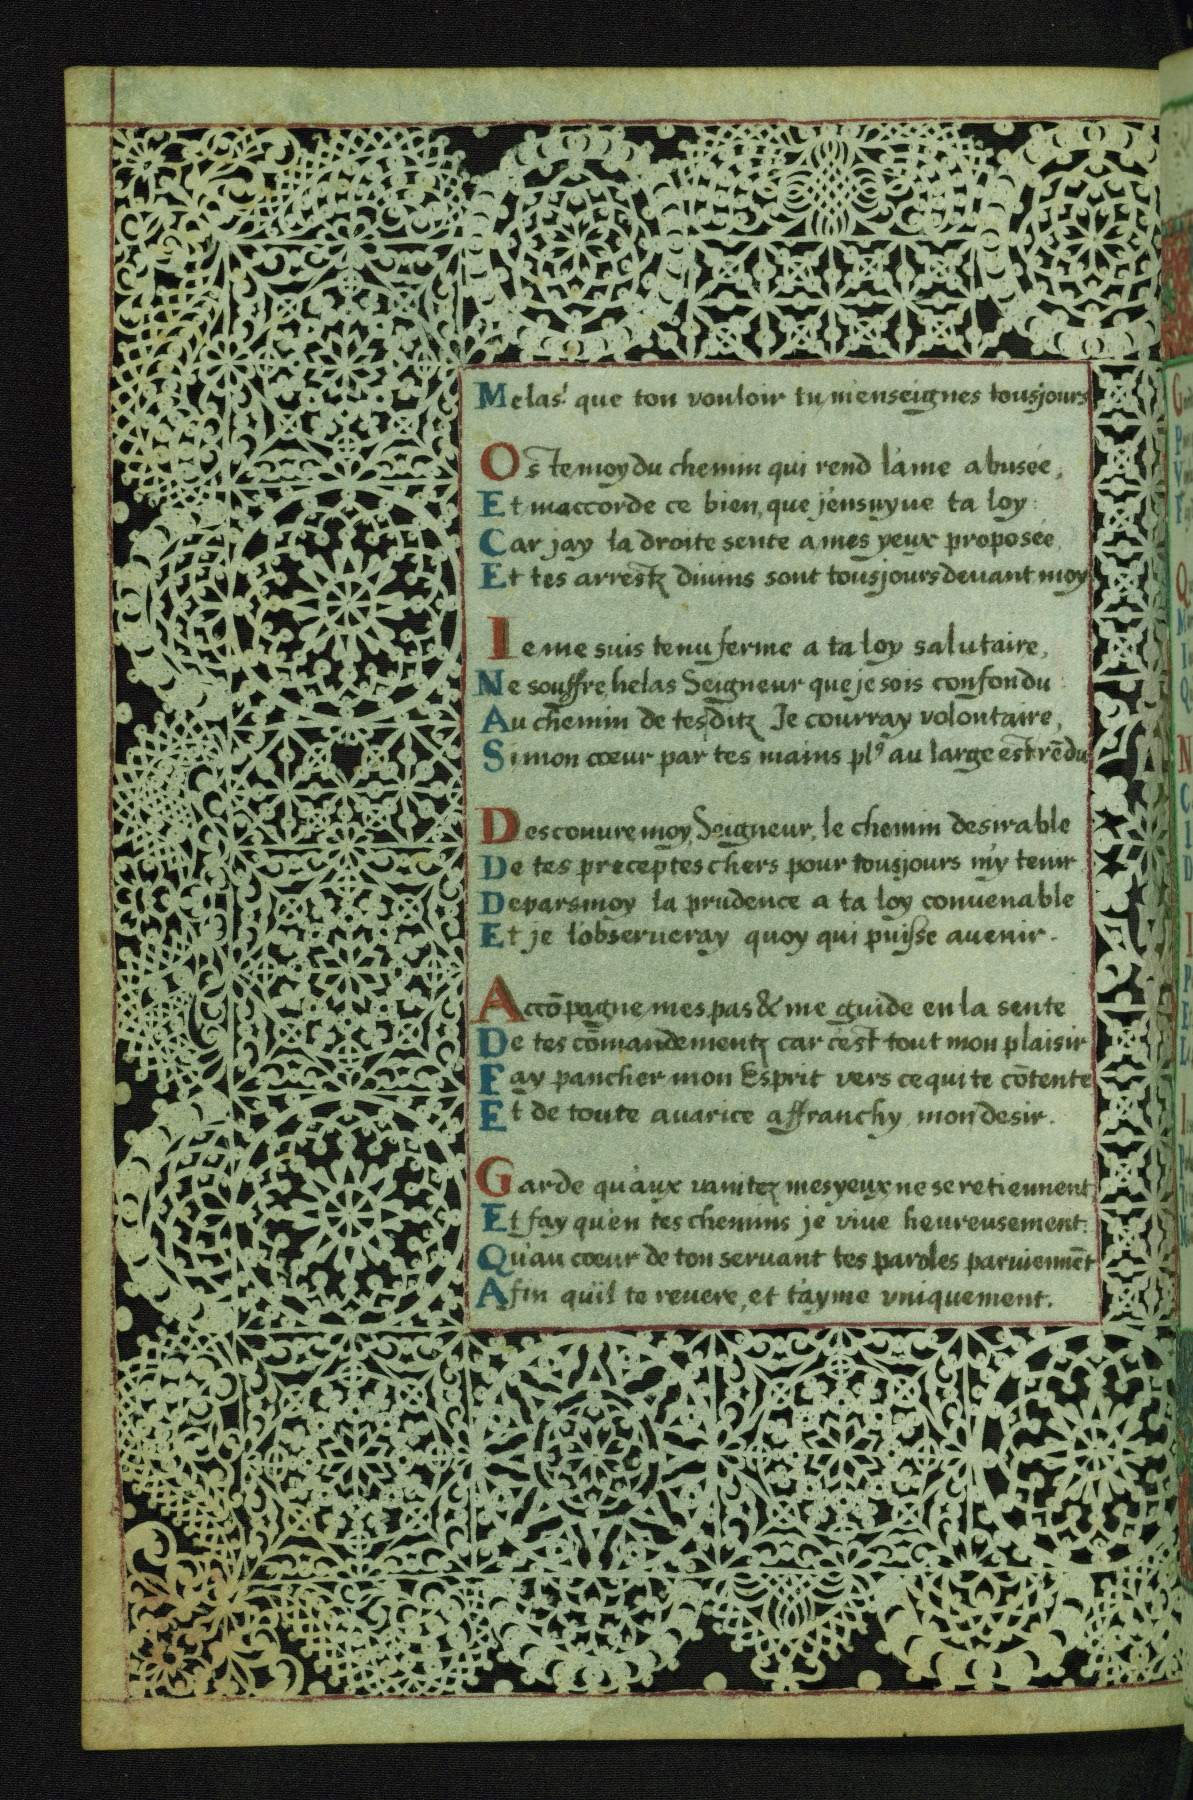 Melas' que ton vouloir tu m'enseignes tousjours
Ostemoy du chemin qui rend l'ame abusée,
Et maccorde ce bien, que j'ensuyve ta loy:
Car jay la droite sente a mes yeux proposée,
Et tes arrestz divins sont tousjours devant moy
Ie me suis tenu ferme a ta loy salutaire,
Ne souffre helas Seigneur que je sois confondu:
Au chemin de tes ditz Je courray volontaire,
Si mon cœur par tes mains plꝰ au large est rēdu
Desconure moy, Seigneur, le chemin desirable
De tes preceptes chers pour tousjours m'y tenir
Depars moy la prudence a ta loy convenable
Et je l'observeray quoy qui puisse avenir.
Accōpagne mes pas & me guide en la sente
De tes cōmandementz car cest tout mon plaisir
Fay pancher mon Esprit vers ce qui te cōtente
Et de toute avarice affranchy mon desir.
Garde qu'aux vanitez mes yeux ne se retiennent
Et fay qu'en tes chemins je vive heureusement:
Qu'au cœur de ton servant tes paroles parviennēt
Afin qu'il te revere, et t'ayme vniquement.